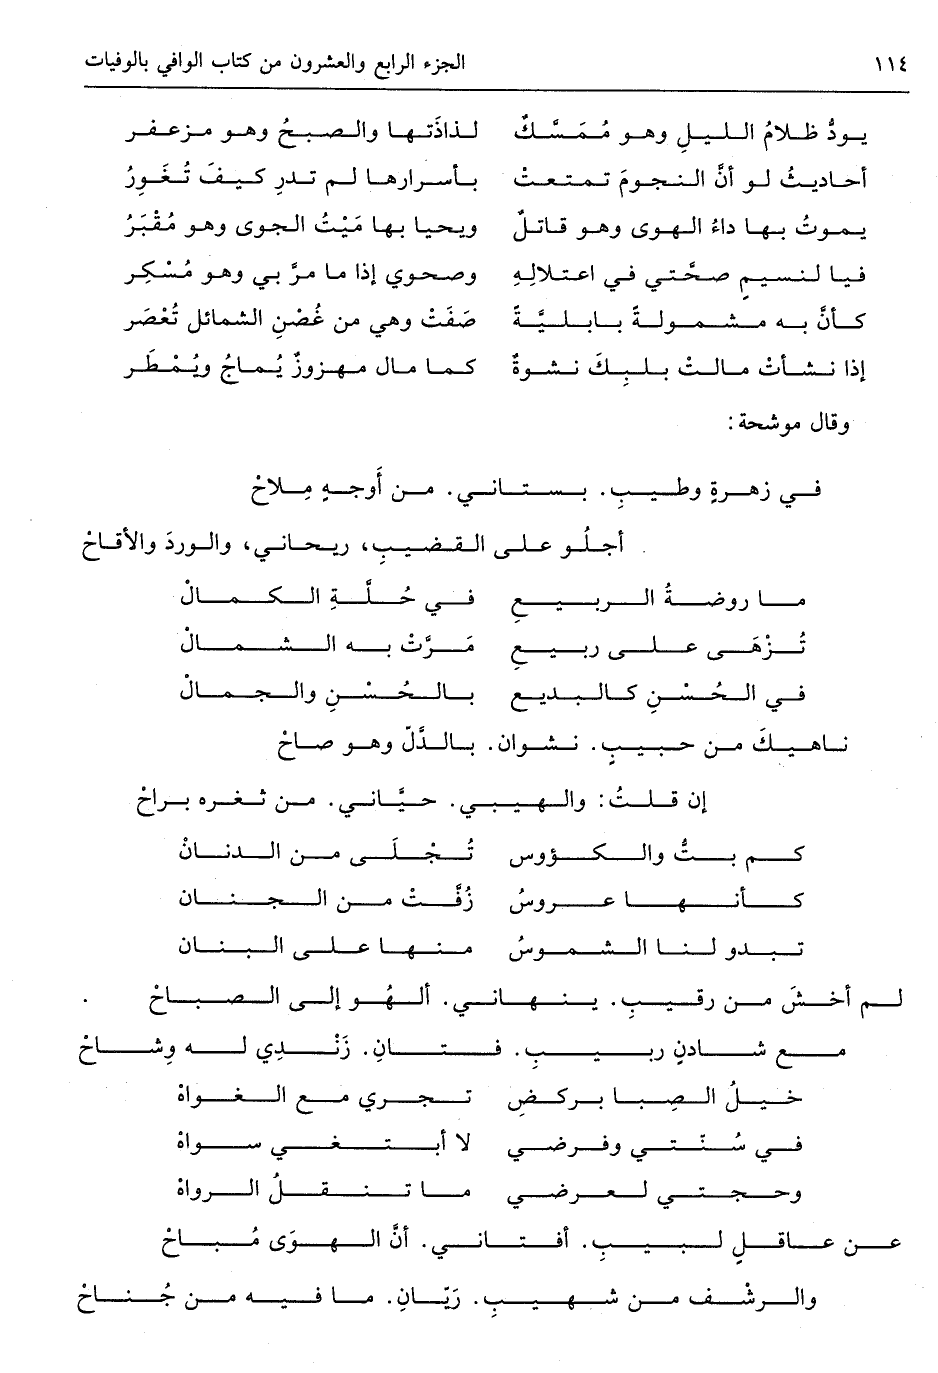 ١١٤ الجزء الرابع والعشرون من كتاب الوافي بالوفيات
يودُّ ظلامُ الليلِ وهو مُمَسَّكٌ لذاذَتها والصبحُ وهو مزعفر
أحاديثُ لو أنَّ النجومَ تمتعت بأسرارها لم تدرِ كيفَ تُغَورُ
يموتُ بها داءُ الهوى وهو قاتلٌ ويحيا بها مَيْتُ الجوى وهو مُقْبَرُ
فيا لنسيمٍ صحَّتي في اعتلالِهِ وصحوي إذا ما مرَّ بي وهو مُسْكِر
كأنَّ به مشمولةً بابليَّةً صَفَتْ وهي من غُصْنِ الشمائل تُعْصَر
إذا نشأتْ مالتْ بلبِكَ نشوةٌ كما مال مهزوزٌ يُماحُ ويُمْطَر
وقال موشحة:
في زهرةٍ وطيبِ. بستاني. من أَوجهٍ مِلاحْ
أجلُو على القضيبِ، ريحاني، والوردَ والأقاحْ
ما روضةُ الربيعِ في حُلَّةِ الكمالْ
تُزْهَى على ربيعِ مَرَّتْ به الشمالْ
في الحُسْنِ كالبديعِ بالحُسْنِ والجمالْ
ناهيكَ من حبيبِ. نشوان. بالدَّلّ وهو صاحْ
إن قلتُ: والهيبي. حيَّاني. من ثغره براحْ
كم بتُّ والكؤوس تُجْلَى من الدنانْ
كأنها عروسُ زُفَّتْ من الجنان
تبدو لنا الشموسُ منها على البنان
لم أخشَ من رقيبِ. ينهاني. ألهُو إلى الصباحْ
مع شادنٍ ربيبِ. فتانِ. زَنْدي له وِشاحْ
خيلُ الصِبا بركضِ تجري مع الغواهْ
في سُنّتي وفرضي لا أبتغي سواهْ
وحجتي لعرضي ما تنقلُ الرواهْ
عن عاقلٍ لبيبِ. أفتاني. أنَّ الهوَى مُباحْ
والرشْف من شهيبِ. رَيّانِ. ما فيه من جُناحْ